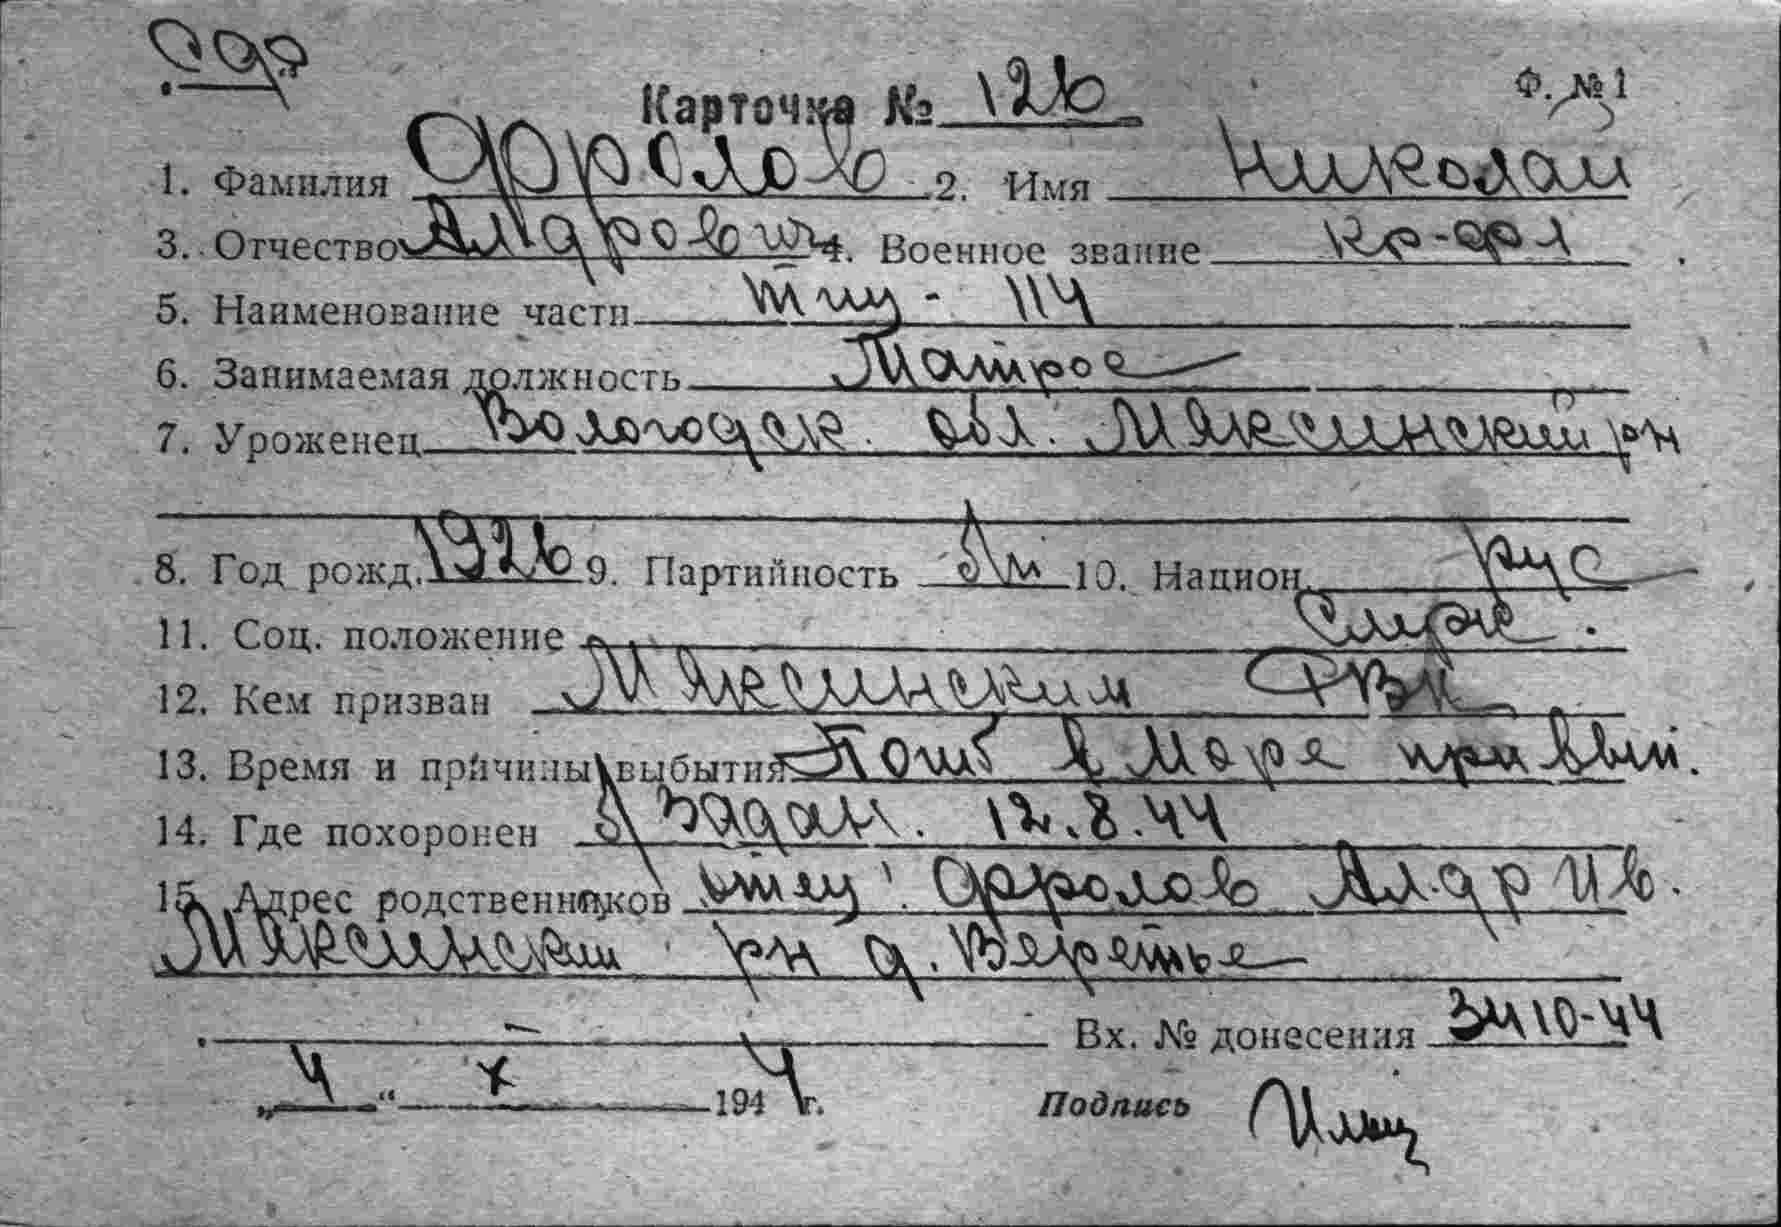 Сф
Ф. № 1
Карточка № 126
1. Фамилия Фролов 2. Имя Николай
3. Отчество Ал-дрович 4. Военное звание кр-фл
5. Наименование части тщ - 114
6. Занимаемая должность Матрос
7. Уроженец Вологодск. обл. Мяксинский рн
8. Год рожд. 1926 9. Партийность б/п 10. Национ. рус
11. Соц. положение служ.
12. Кем призван Мяксинским РВК
13. Время и причины выбытия Погиб в море при вып.
14. Где похоронен задан. 12.8.44
15. Адрес родственников отец: Фролов Ал-др Ив.
Мяксинский рн д. Веретье
Вх. № донесения 3410-44
„4“ X 1944 г. Подпись